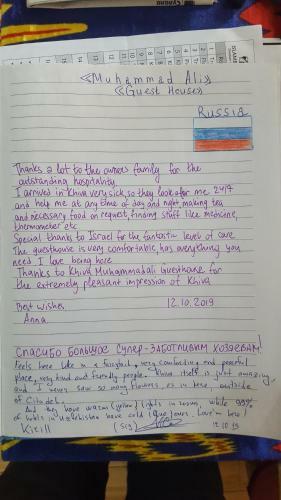 «Muhammad Ali»
«Guest House»
Russia
Thanks a lot to the owners family for the
outstanding hospitality.
I arrived in Khiva very sick, so they look after me 24/7
and help me at any time of day and night, making tea
and necessary food on request, finding stuff like medicine,
thermometer etc
Special thanks to Israel for the fantastic level of care
The guesthouse is very comfortable, has everything you
need I love being here
Thanks to Khiva Muhammadali Guesthouse for
the extremely pleasant impression of Khiva
Best wishes 12.10.2019
Anna
СПАСИБО БОЛЬШОЕ СУПЕР-ЗАБОТЛИВЫМ ХОЗЯЕВАМ!
Feels here like in a fairytale, very comforting and peaceful
place, very kind and friendly people. Khiva itself is just amazing,
and I never saw so many flowers, as in here, outside
of Citadel.
And they have warm (yellow) lights in rooms, while 99%
of hotels in Uzbekistan have cold (blue) ones. Love'm here!
Kirill 12.10.19